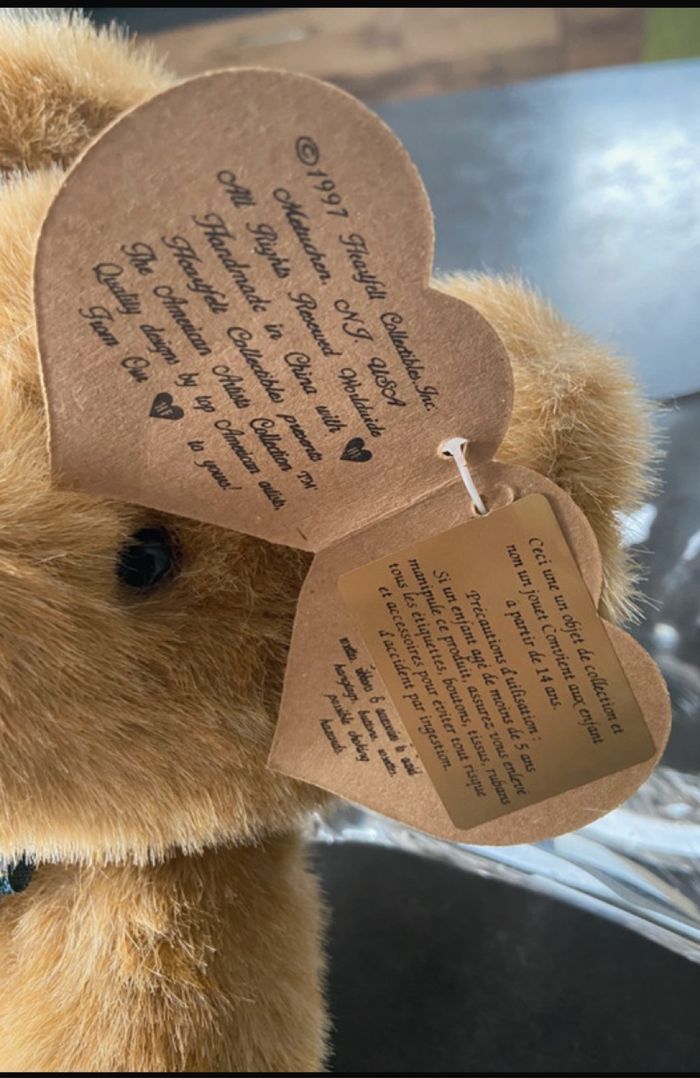 ©1997 Heartfelt Collectibles, Inc.
Metuchen, NJ. USA
All Rights Reserved Worldwide
Handmade in China with
Heartfelt Collectibles presents
The American Artists Collection ™
Quality designs by top American artists,
From Our to yours!
Ceci une un objet de collection et
non un jouet Convient aux enfant
a partir de 14 ans.
Précautions d'uilisation :
Si un enfant agé de moins de 5 ans
manipule ce produit, assurez vous enlevé
tous les étiquettes, boutons, tissus, rubans
et accessoires pour eviter tout risque
d'accident par ingestion.
hangtags, buttons,
possible choking
hazards.